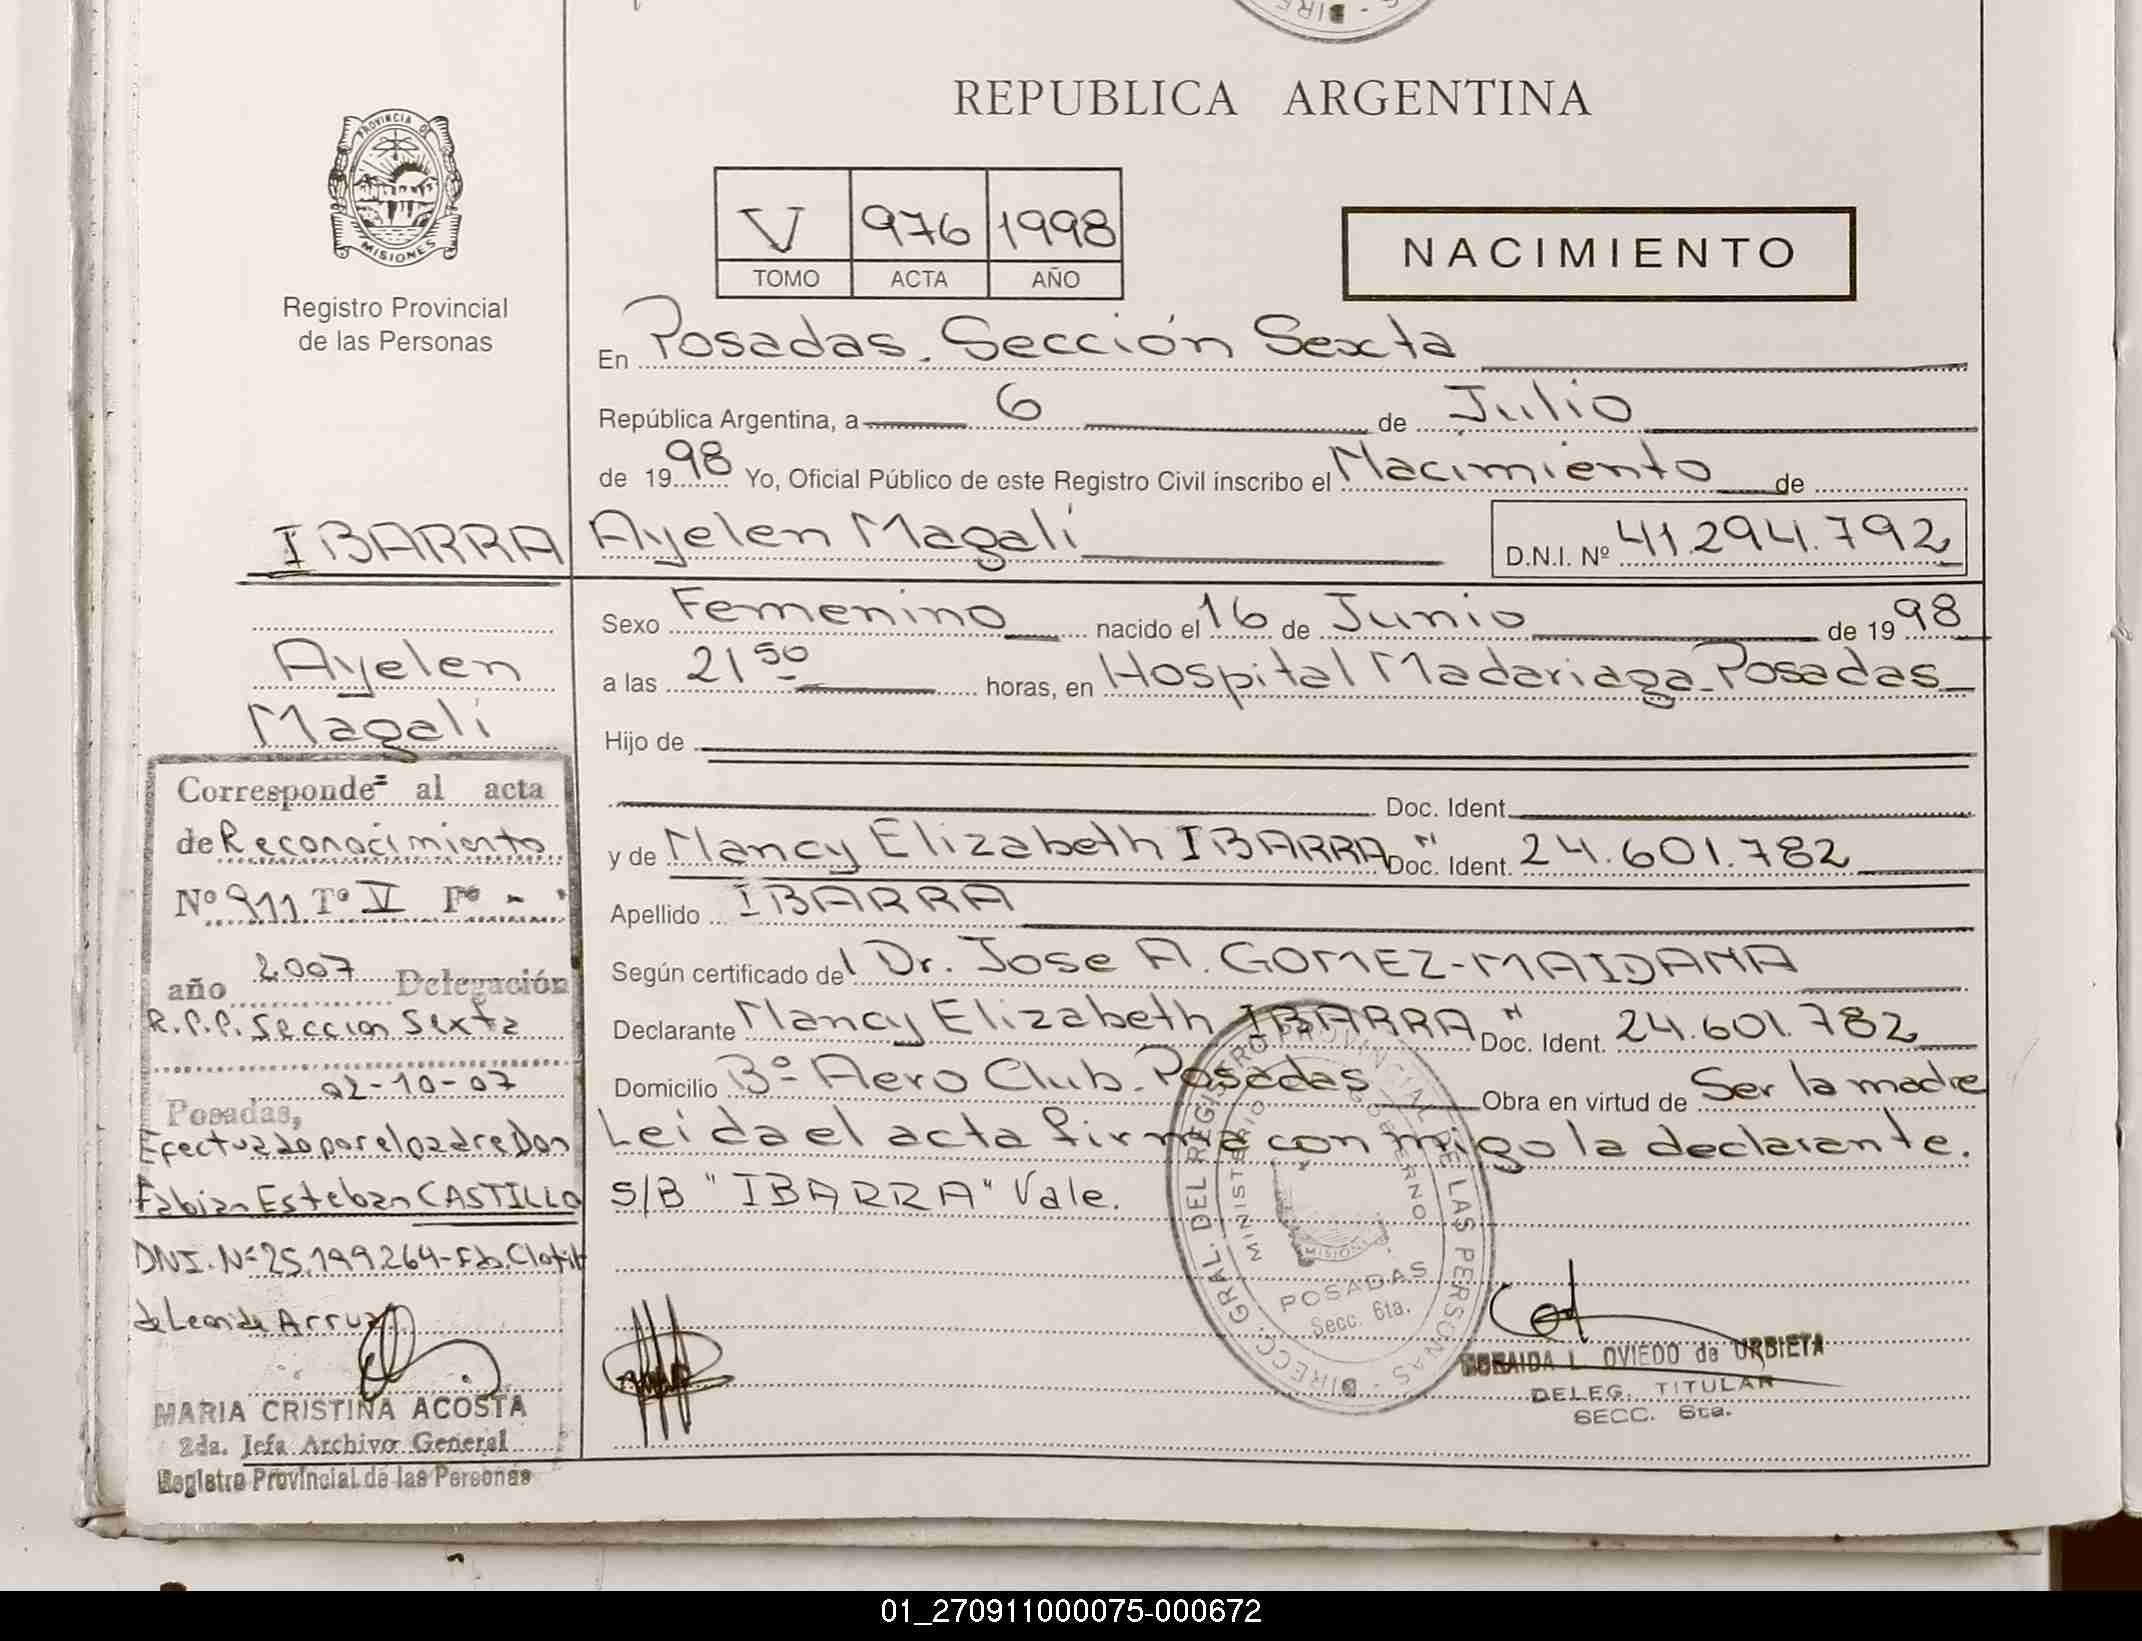 REPUBLICA ARGENTINA
PROVINCIA DE
MISIONES
Registro Provincial
de las Personas
V 976 1998
TOMO ACTA AÑO
NACIMIENTO
En Posadas. Sección Sexta
República Argentina, a 6 de Julio
de 1998 Yo, Oficial Público de este Registro Civil inscribo el Nacimiento de
IBARRA Ayelen Magalí
D.N.I. Nº 41.294.792
Ayelen
Magalí
Sexo Femenino nacido el 16 de Junio de 1998
a las 21 50 horas, en Hospital Madariaga - Posadas
Hijo de
Doc. Ident.
y de Nancy Elizabeth IBARRA " Doc. Ident. 24.601.782
Apellido IBARRA
Según certificado del Dr. Jose A. GOMEZ-MAIDANA
Declarante Nancy Elizabeth IBARRA " Doc. Ident. 24.601.782
Domicilio Bº Aero Club - Posadas Obra en virtud de Ser la madre
Leida el acta firma con migo la declarante.
S/B "IBARRA" Vale.
Corresponde al acta
de Reconocimiento
Nº 911 Tº V Fº -
año 2007 Delegación
R.P.P. Seccion Sexta
02-10-07
Posadas,
Efectuado por el padre Don
Fabian Esteban CASTILLO
DNI. Nº 25.199.264
de Leon de
MARIA CRISTINA ACOSTA
2da. Jefa Archivo General
Registro Provincial de las Personas
DIRECC. GRAL. DEL REGISTRO PROVINCIAL DE LAS PERSONAS
MINISTERIO GOBIERNO
MISIONES
POSADAS
Secc. 6ta.
L. OVIEDO de URBIETA
DELEG. TITULAR
SECC. 6ta.
01_270911000075-000672